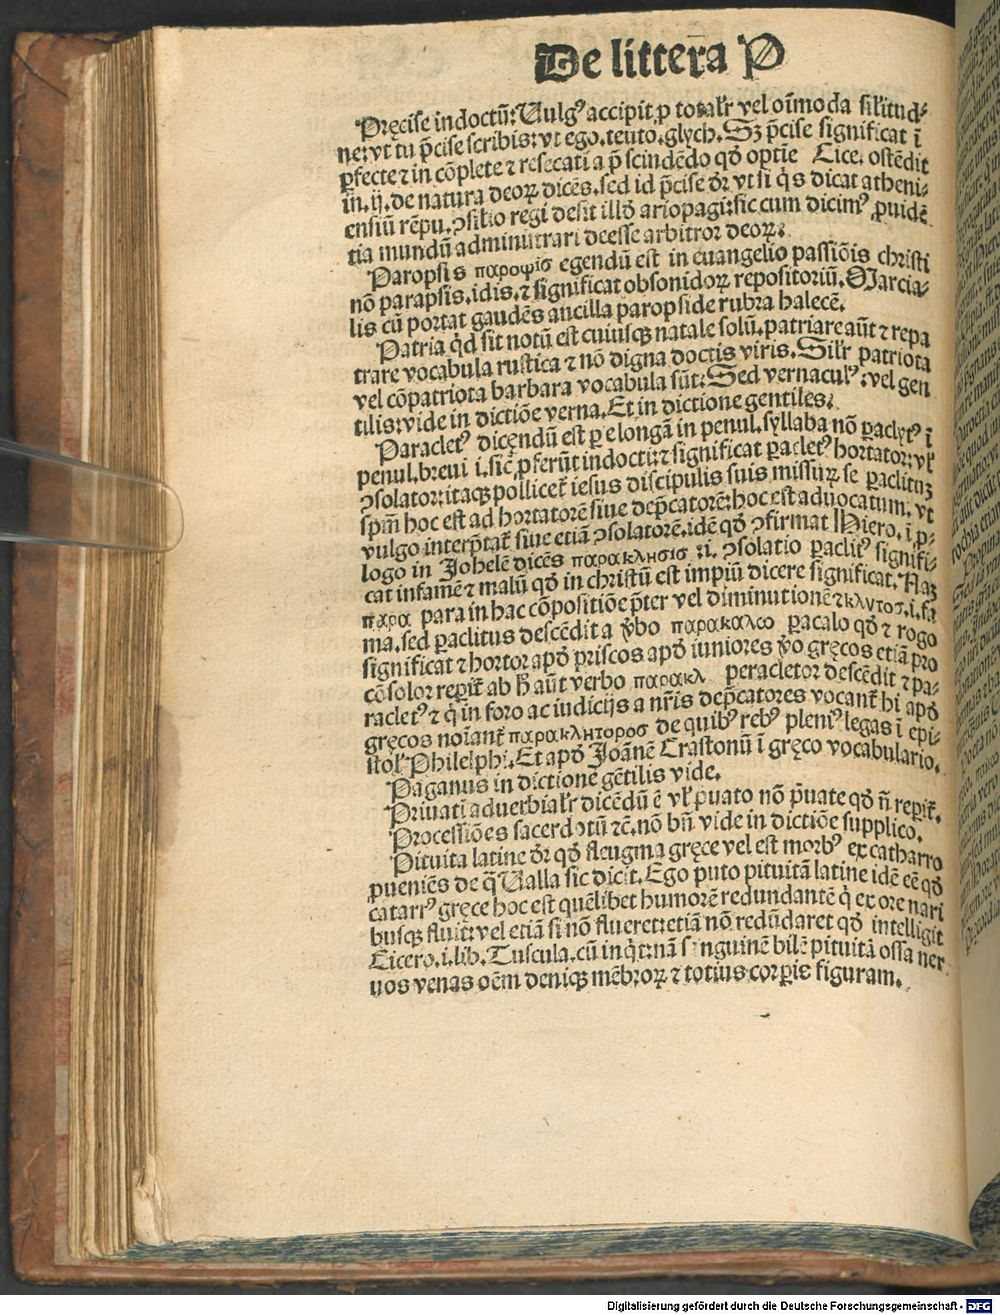 De littera P
Pręcise indoctũ: Uulgꝰ accipit ꝓ totalr̃ vel oĩmoda sil'itud⸗
ne: vt tu p̃cise scribis: vt ego. teuto. glych. Sꝫ p̃cise significat ĩ
ꝑfecte ⁊ in cõplete ⁊ resecati a p̃scindẽdo qd̛ optĩe Cice. ostẽdit
in. ij. de natura deoꝝ dicẽs. sed id p̃cise dr̃ vt si q̇s dicat atheni⸗
ensiũ rẽpu. ꝯsilio regi desit illd̛ ariopagi: sic cum dicimꝰ ꝓuidẽ
tia mundũ administrari deesse arbitror deoꝝ.
Paropsis παροψις egendũ est in euangelio passiõis christi
nõ parapsis. idis. ⁊ significat obsonidoꝝ repositoriũ. Marcia⸗
lis cũ portat gaudẽs ancilla paropside rubra halecẽ.
Patria q̇d sit notũ est cuiusqꝫ natale solũ. patriare aũt ⁊ repa
trare vocabula rustica ⁊ nõ digna doctis viris. Silr̃ patriota
vel cõpatriota barbara vocabula sũt: Sed vernaculꝰ: vel gen
tilis: vide in dictiõe verna. Et in dictione gentiles.
Paracletꝰ dicẽndũ est ꝑ e longã in penul. syllaba nõ ꝑaclytꝰ ĩ
penul. breui i. sic̃ ꝓferũt indocti: ⁊ significat ꝑacletꝰ hortator: vl̛
ꝯsolator: itaqꝫ pollicet̃ iesus discipulis suis missuꝝ se ꝑaclituꝫ
spm̃ hoc est ad hortatorẽ siue dep̃catorẽ: hoc est aduocatum. vt
vulgo interp̃tat̃ siue etiã ꝯsolatorẽ. idẽ qd̛ ꝯfirmat Hiero. ĩ ꝓ⸗
logo in Johelẽ dicẽs παρακλησις .i. ꝯsolatio ꝑaclitꝰ signifi⸗
cat infamẽ ⁊ malũ qd̛ in christũ est impiũ dicere significat. Naꝫ
παρα para in hac cõpositiõe p̃ter vel diminutionẽ ⁊ κλυτοσ. i. fa
ma. sed ꝑaclitus descẽdit a v̛bo παρακαλω ꝑacalo qd̛ ⁊ rogo
significat ⁊ hortor apd̛ priscos apd̛ iuniores v̛o gręcos etiã pro
cõsolor reperit̃ ab h̛ aũt verbo παρακλ peracletor descẽdit ⁊ pa⸗
racletꝰ ⁊ q̇ in foro ac iudicijs a nr̃is dep̃catores vocant̃ hi apd̛
gręcos noĩant̃ παρακλητοροσ de quibꝰ rebꝰ pleniꝰ legas ĩ epi⸗
stol̛ Philelphi. Et apd̛ Joãnẽ Crastonũ ĩ gręco vocabulario.
Paganus in dictione gẽtilis vide.
Priuati aduerbialr̃ dicẽdũ ẽ vl̛ p̛uato nõ p̛uate qd̛ ñ reperit̃.
Processiões sacerdotũ ⁊c̃. nõ bñ vide in dictiõe supplico.
Pituita latine dr̃ qd̛ fleugma gręce vel est morbꝰ ex catharro
ꝓueniẽs de q̃ Ualla sic dicit. Ego puto pituitã latine idẽ eẽ qd̛
catarrꝰ gręce hoc est quẽlibet humorẽ redundantẽ q̇ ex ore nari
busqꝫ fluit: vel etiã si nõ flueret: etiã nõ redũdaret qd̛ intelligit
Cicero. i. lib. Tuscula. cũ inq̇t: nã sanguinẽ bilẽ pituitã ossa ner
uos venas oẽm deniqꝫ mẽbroꝝ ⁊ totius corꝑis figuram.
Digitalisierung gefördert durch die Deutsche Forschungsgemeinschaft - DFG